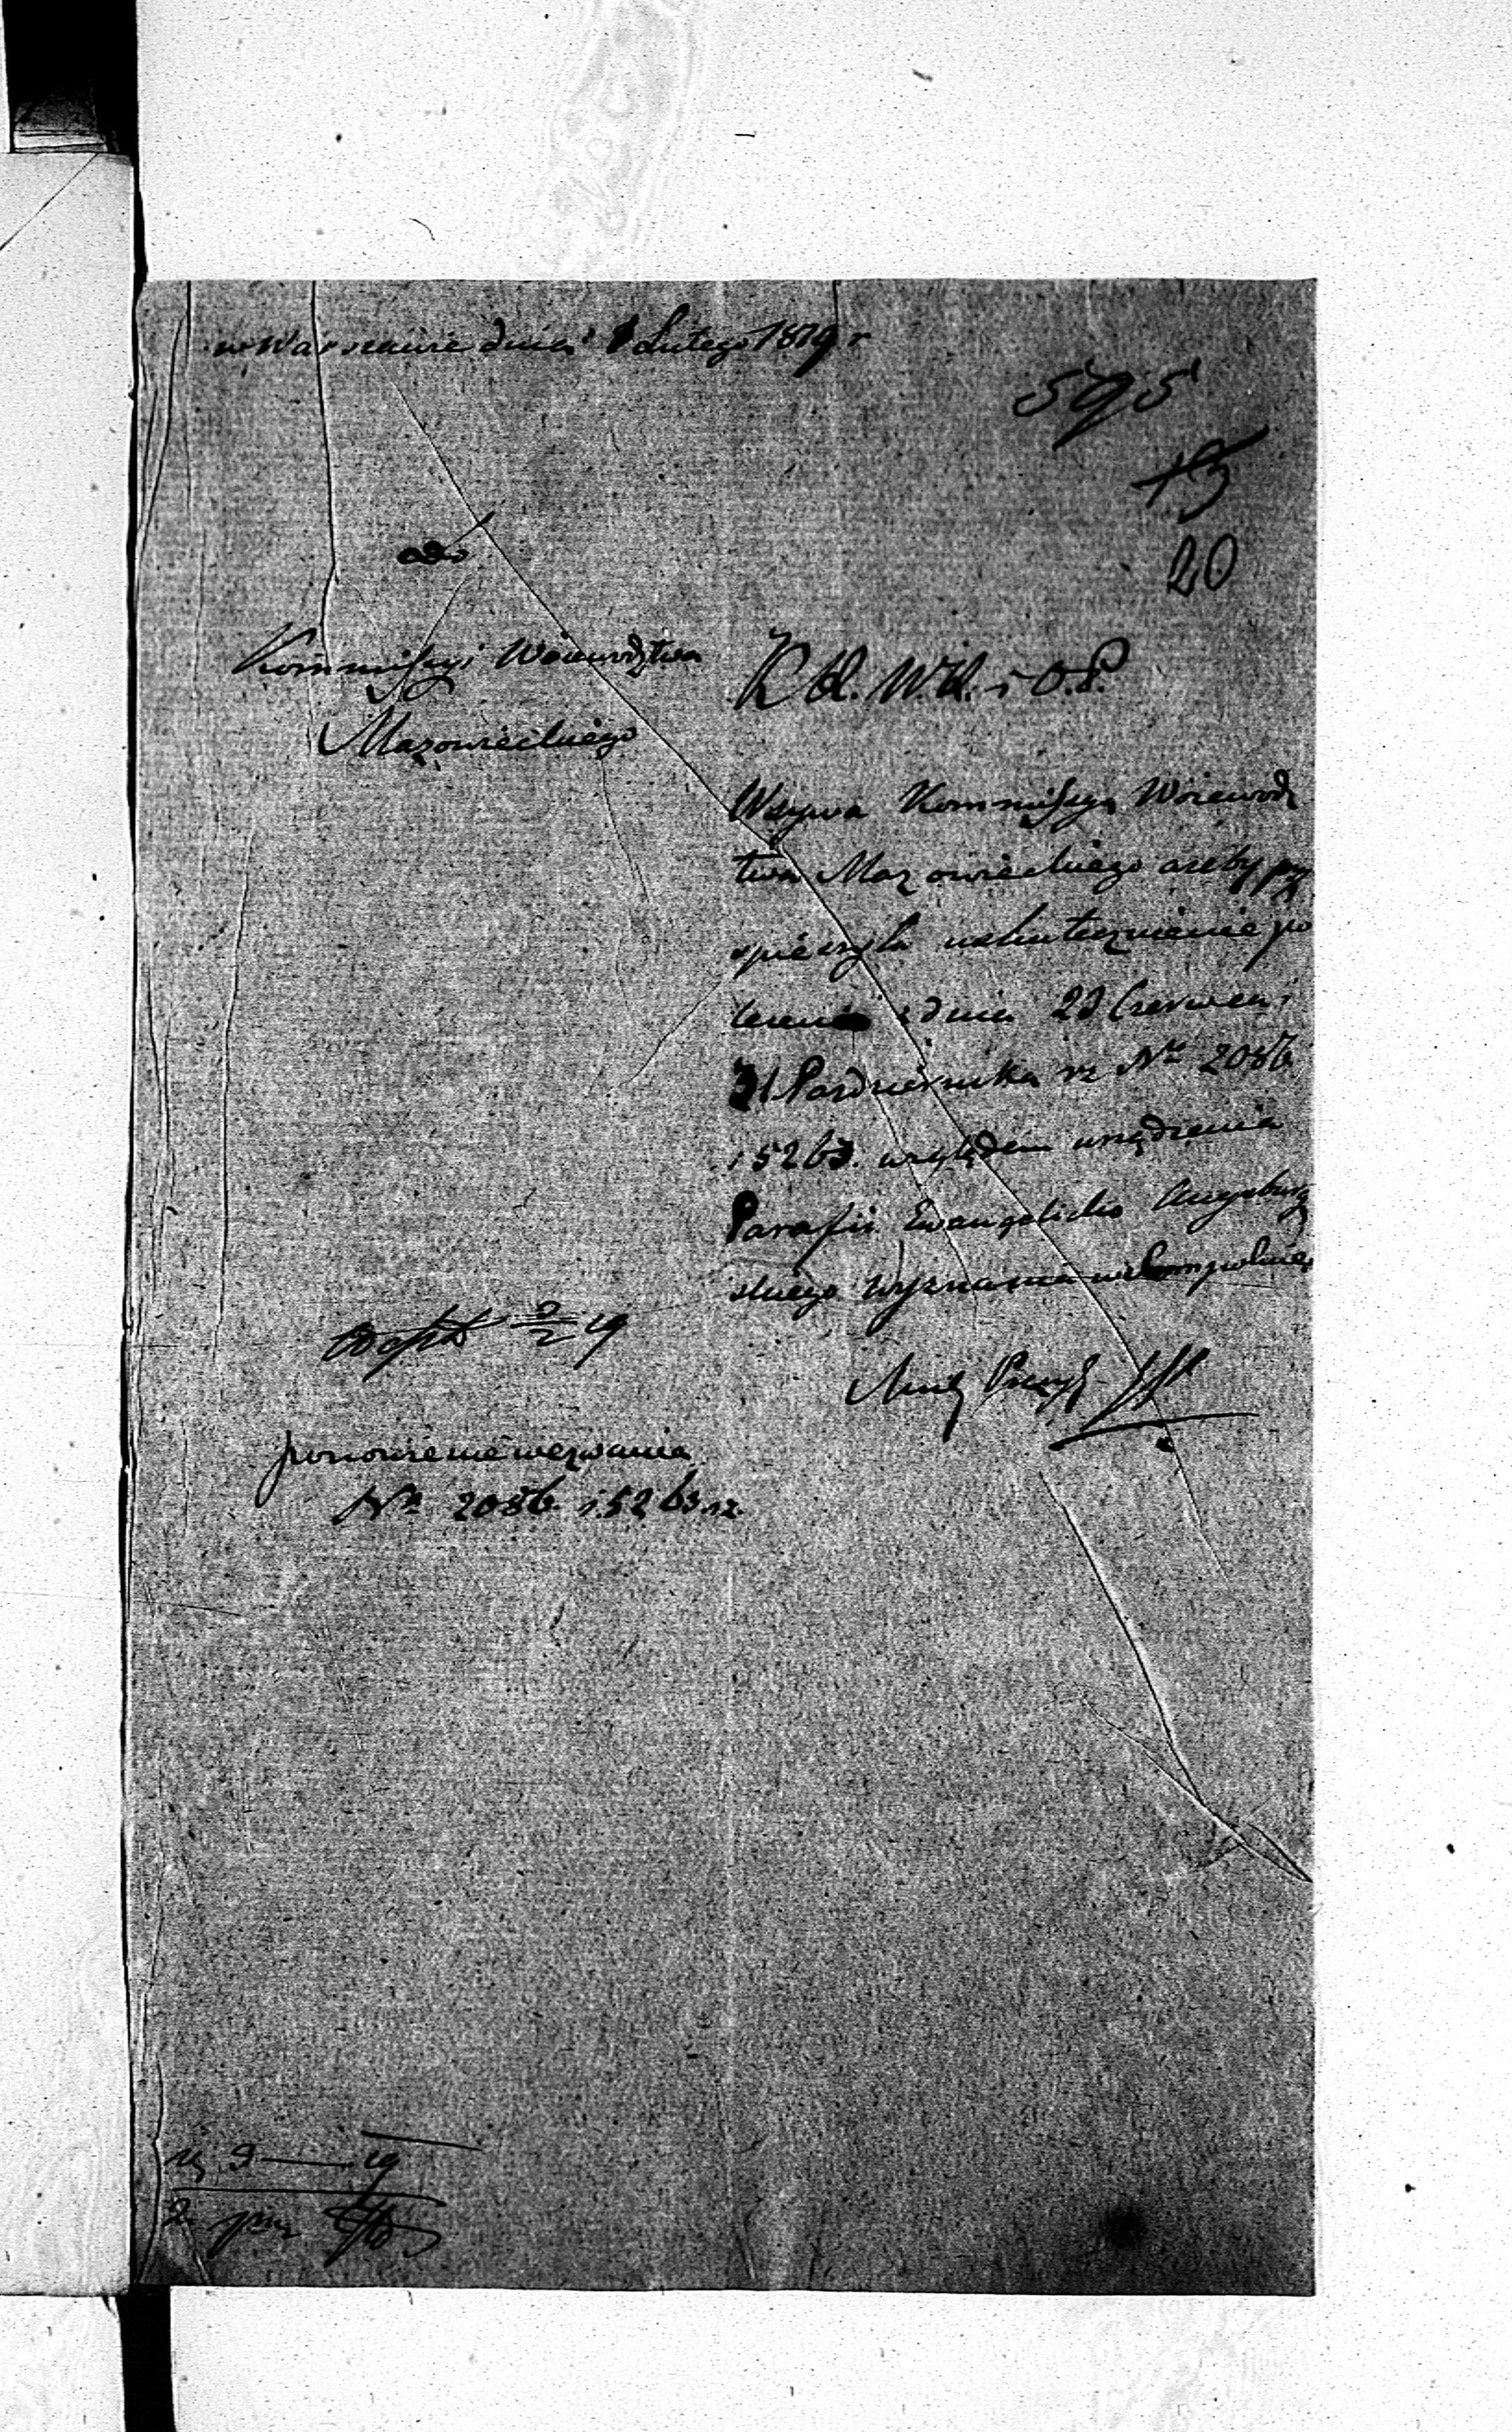 w Warszawie dnia 8 Lutego 1819 r
595
13
20
do
Kommissyi Woiewodztwa
Mazowieckiego
K. R. W. R. i O. P.
Wzywa Kommissyą Woiewodz
twa Mazowieckiego ażeby przy
spieszyła uskutecznienie po
leceń z dnia 23 Czerwca i
31 Pazdziernika rz Nro 2086
i 5263. względem urządzenia
Parafii Ewangelicko Augsburg
skiego wyznania
Prezyd.
19
ponowienie wezwania
Nro 2086 i 5263 rz.
19